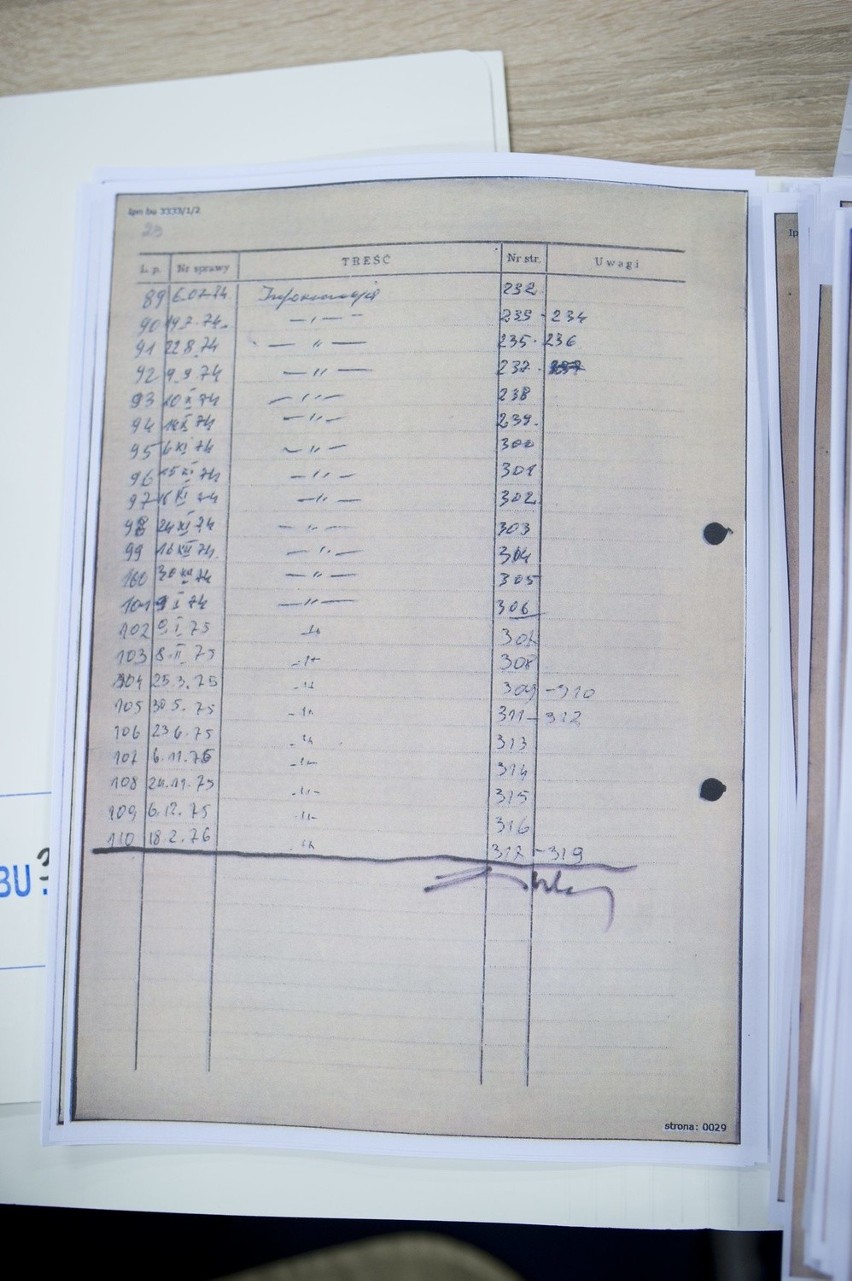 Ipn bu XXXX/1/2
29
L. p. Nr sprawy TREŚĆ Nr str. Uwagi
89 6.07.74. Informacja 232
90 19.7.74. —„— 233-234
91 22.8.74 —„— 235-236
92 9.9.74 —„— 237
93 10 X 74 —„— 238
94 74 —„— 239.
95 6 XI 74 —„— 300
96 15 XI 74 —„— 301
97 XI —„— 302
98 24 XI 74 —„— 303
99 16 XII 74. —„— 304
100 30 XII 74 —„— 305
101 9 I 74 —„— 306
102 9.I.75 -„- 307
103 8.II.75 -„- 308
104 25.3.75 -„- 309-310
105 30 5.75 -„- 311-312
106 23 6.75 -„- 313
107 6.11.75 -„- 314
108 24.11.75 -„- 315
109 6.12.75 -„- 316
110 18.2.76 -„- 317-319
BU
strona: 0029